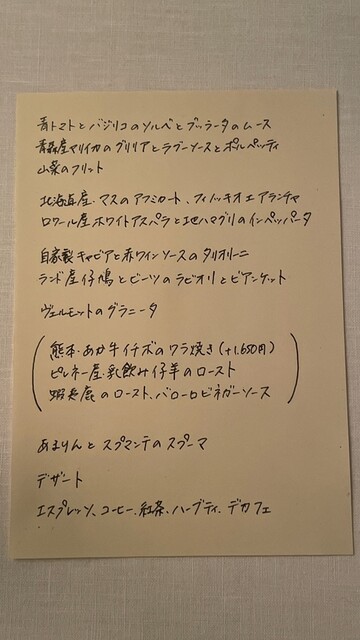 青トマトとバジリコのソルベとブッラータのムース
青森産マリイカのグリリアとラグーソースとポルペッティ
山菜のフリット
北海道産・マスのアフミカート、フィノッキオ エ アランチャ
ロワール産ホワイトアスパラと地ハマグリのインペパータ
自家製キャビアと赤ワインソースのタリオリーニ
ランド産仔鳩とビーツのラビオリとビアンケット
ヴェルモットのグラニータ
熊本・あか牛イチボのワラ焼き(+1,650円)
ピレネー産・乳飲み仔羊のロースト
蝦夷鹿のロースト、バローロビネガーソース
あまりんとスプマンテのスプーマ
デザート
エスプレッソ、コーヒー、紅茶、ハーブティ、デカフェ